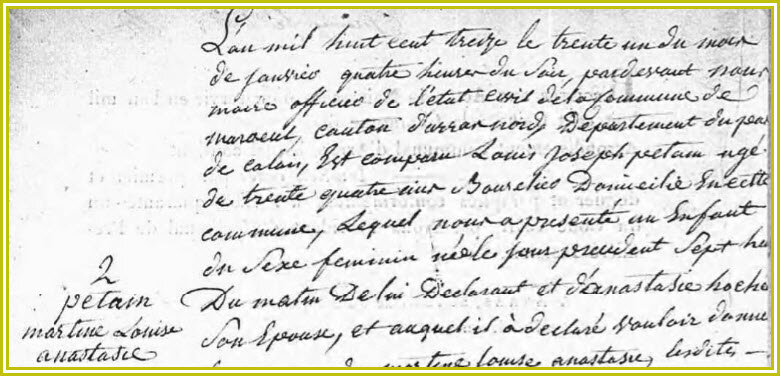 L'an mil huit cent treize le trente un du mois
de janvier quatre heures du soir, pardevant nous
maire officier de l'état civil de la commune de
maroeuil, canton d'arras nord, Département du pas
de calais, Est comparu Louis Joseph petain agé
de trente quatre ans Bourelier Domicilié En cette
commune, Lequel nous a presenté un Enfant
du Sexe feminin née le jour precedent Sept he
2
petain
martine Louise
anastasie
Du matin De lui Declarant et d'anastasie hoche
Son Epouse, et auquel il à declaré vouloir donne
martine louise anastasie, lesdites